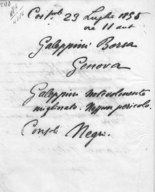 Cost.li 23 Luglio 1856
ore 11 ant
Galeppini Borsa
Genova
Galeppini notevolmente
migliorato. Nessun pericolo.
Console Negri